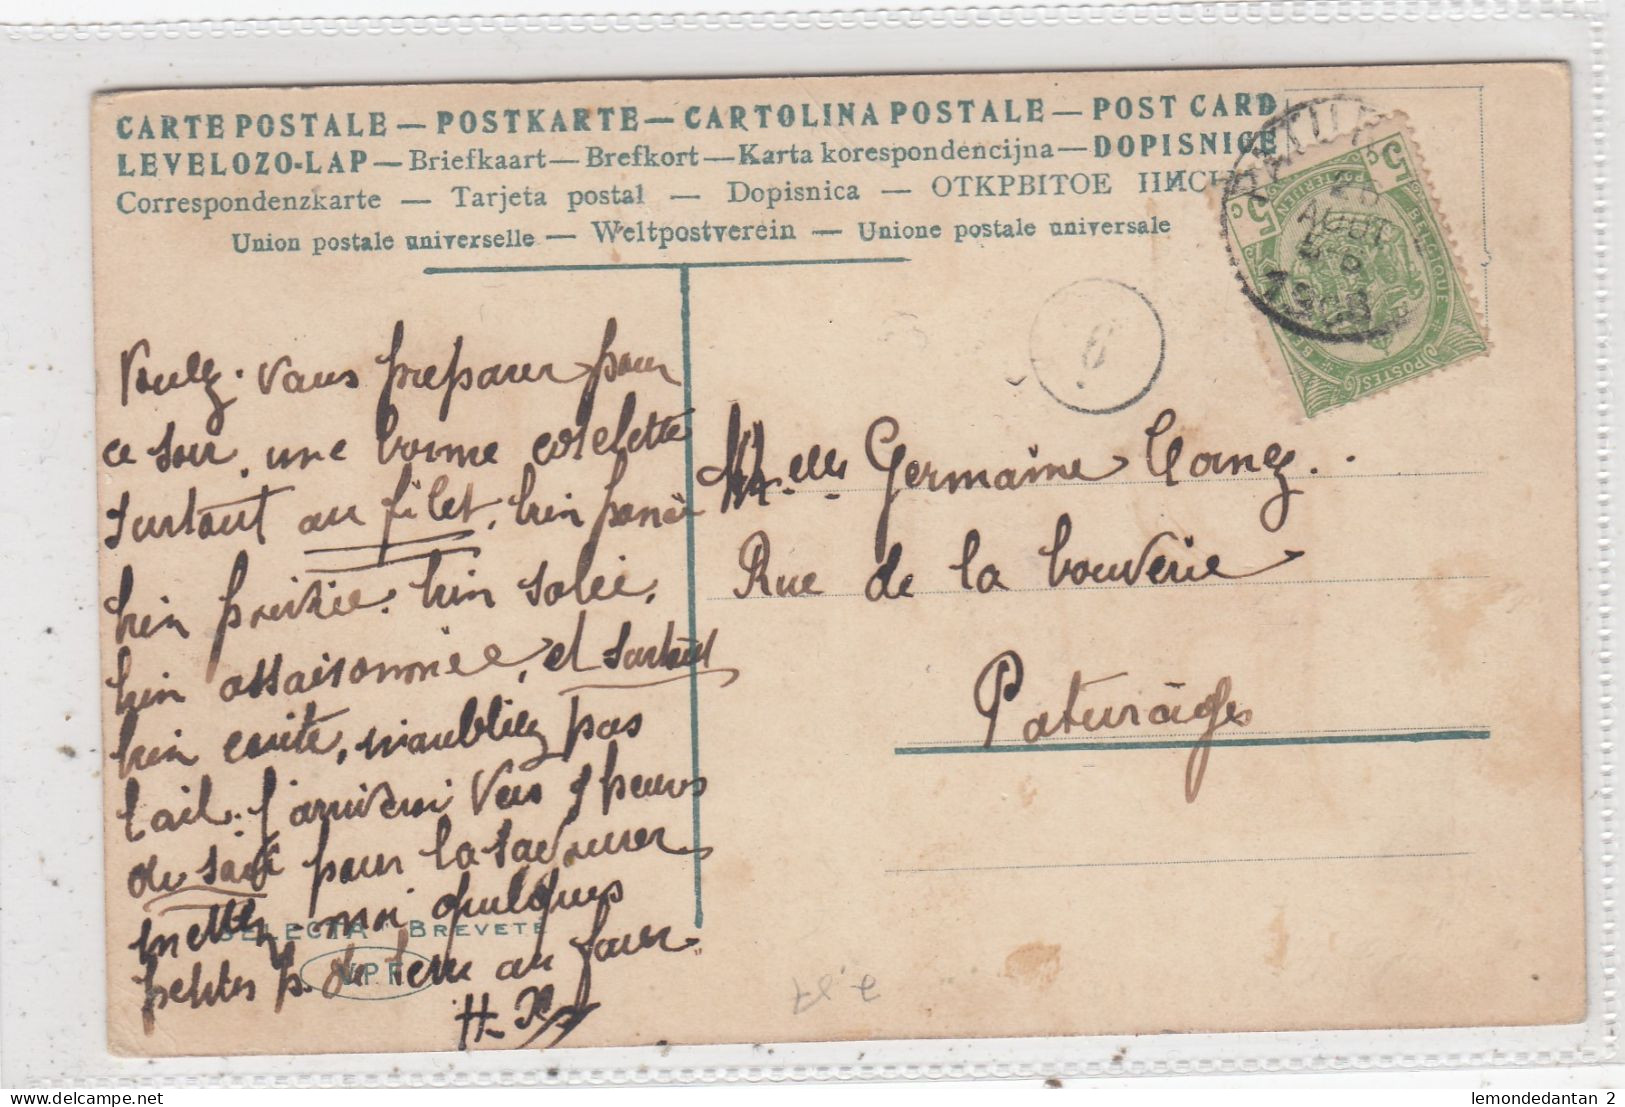 CARTE POSTALE — POSTKARTE — CARTOLINA POSTALE — POST CARD
LEVELOZO-LAP — Briefkaart — Brefkort — Karta korespondencijna — DOPISNICE
Correspondenzkarte — Tarjeta postal — Dopisnica — ОТКРВІТОЕ ПИС
Union postale universelle — Weltpostverein — Unione postale universale
26
AOUT
1908
5 c
BELGIQUE
POSTES
Voulez-vous preparer pour
ce soir, une bonne cotelette
surtout au filet, bien panée
bien poivrée, bien salée,
bien assaisonnée, et surtout
bien cuite, n'oubliez pas
l'ail. J'arriverai vers 9 heures
du soir pour la savourer
mettez-moi quelques
petites p. de terre au four
H.
SELECTA BREVETE
V.P.F.
M.elle Germaine
Rue de la bouverie
Paturâges
lemondedantan 2